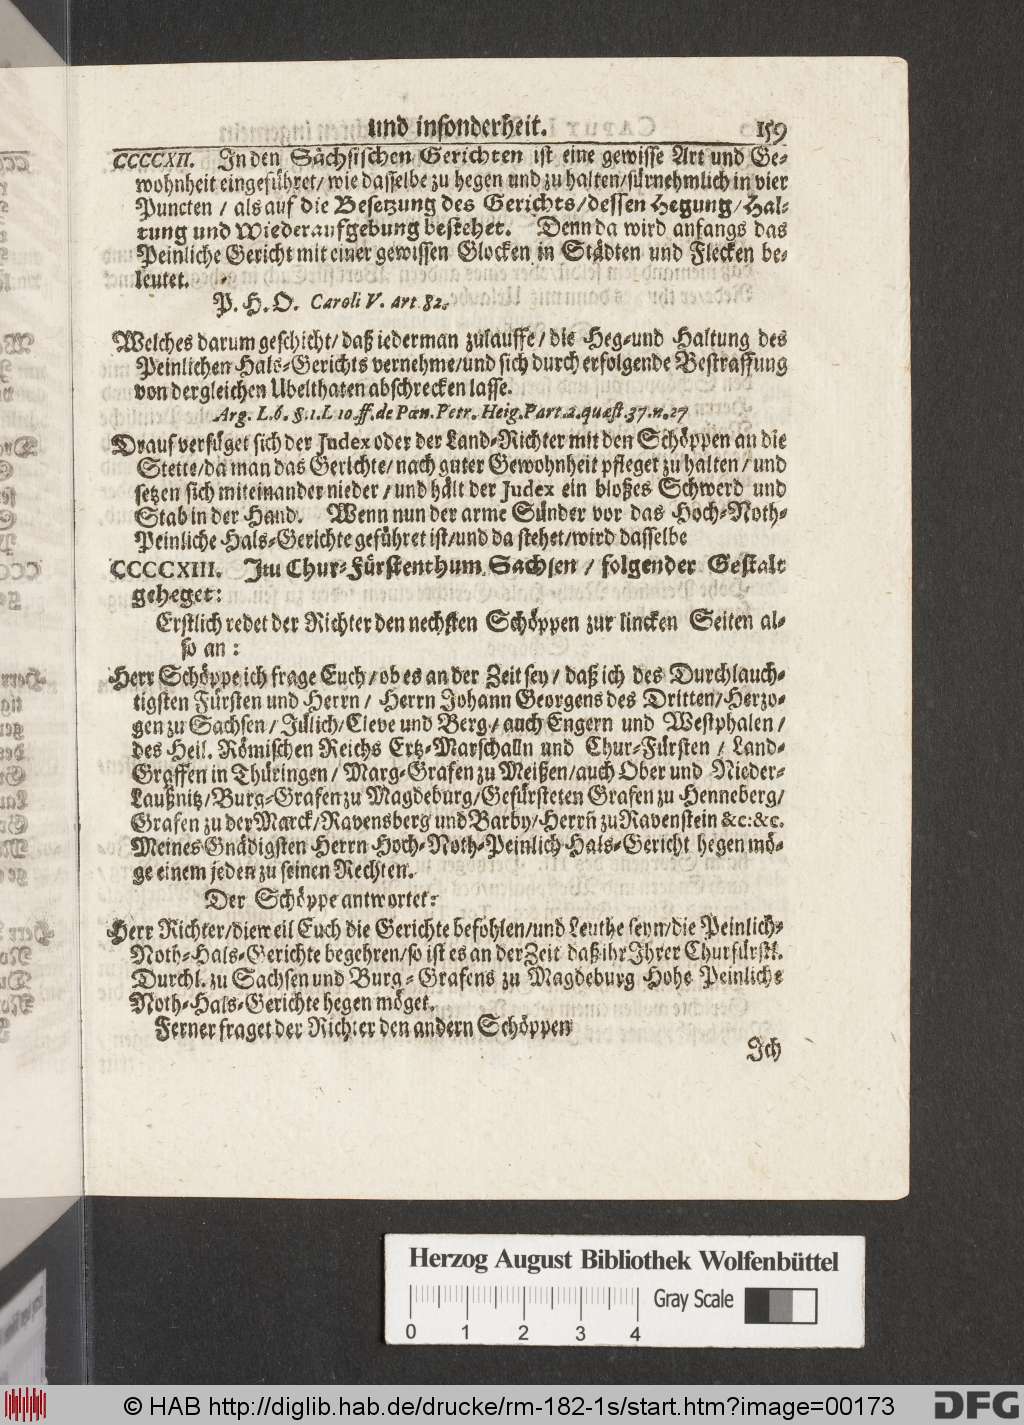 und insonderheit. 159
CCCCXII. In den Sächsischen Gerichten ist eine gewisse Art und Ge-
wohnheit eingeführet/ wie dasselbe zu hegen und zu halten/fürnehmlich in vier
Puncten / als auf die Besetzung des Gerichts/dessen Hegung/Hal-
tung und Wiederaufgebung bestehet. Denn da wird anfangs das
Peinliche Gericht mit einer gewissen Glocken in Städten und Flecken be-
leutet.
P. H. O. Caroli V. art 82.
Welches darum geschicht/ daß iederman zulauffe/ die Heg-und Haltung des
Peinlichen Hals-Gerichts vernehme/und sich durch erfolgende Bestraffung
von dergleichen Ubelthaten abschrecken lasse.
Arg. L. 6. §. 1. L 10. ff. de Pœn. Petr. Heig. Part. 2. quæst. 37. n. 27
Drauf verfüget sich der Judex oder der Land-Richter mit den Schöppen an die
Stette/da man das Gerichte/nach guter Gewohnheit pfleget zu halten / und
setzen sich miteinander nieder / und hält der Judex ein bloßes Schwerd und
Stab in der Hand. Wenn nun der arme Sünder vor das Hoch-Noth-
Peinliche Hals-Gerichte geführet ist/und da stehet/wird dasselbe
CCCCXIII. Im Chur-Fürstenthum Sachsen / folgender Gestalt
geheget:
Erstlich redet der Richter den nechsten Schöppen zur lincken Seiten al-
so an :
Herr Schöppe ich frage Euch/ ob es an der Zeit sey / daß ich des Durchlauch-
tigsten Fürsten und Herrn / Herrn Johann Georgens des Dritten/Herzo-
gen zu Sachsen / Jülich/Cleve und Berg/ auch Engern und Westphalen /
des Heil. Römischen Reichs Ertz-Marschalln und Chur-Fürsten / Land-
Graffen in Thüringen / Marg-Grafen zu Meißen/auch Ober und Nieder-
Laußnitz/Burg-Grafen zu Magdeburg/Gefürsteten Grafen zu Henneberg/
Grafen zu der Marck/Ravensberg und Barby/Herrn zu Ravenstein &c:&c.
Meines Gnädigsten Herrn Hoch-Noth-Peinlich Hals-Gericht hegen mö-
ge einem jeden zu seinen Rechten.
Der Schöppe antwortet:
Herr Richter/dieweil Euch die Gerichte befohlen/und Leuthe seyn/die Peinlich-
Noth-Hals-Gerichte begehren/so ist es an der Zeit daß ihr Ihrer Churfürstl.
Durchl. zu Sachsen und Burg-Grafens zu Magdeburg Hohe Peinliche
Noth-Hals-Gerichte hegen möget.
Ferner fraget der Richter den andern Schöppen
Ich
Herzog August Bibliothek Wolfenbüttel
Gray Scale
0 1 2 3 4
© HAB http://diglib.hab.de/drucke/rm-182-1s/start.htm?image=00173
DFG